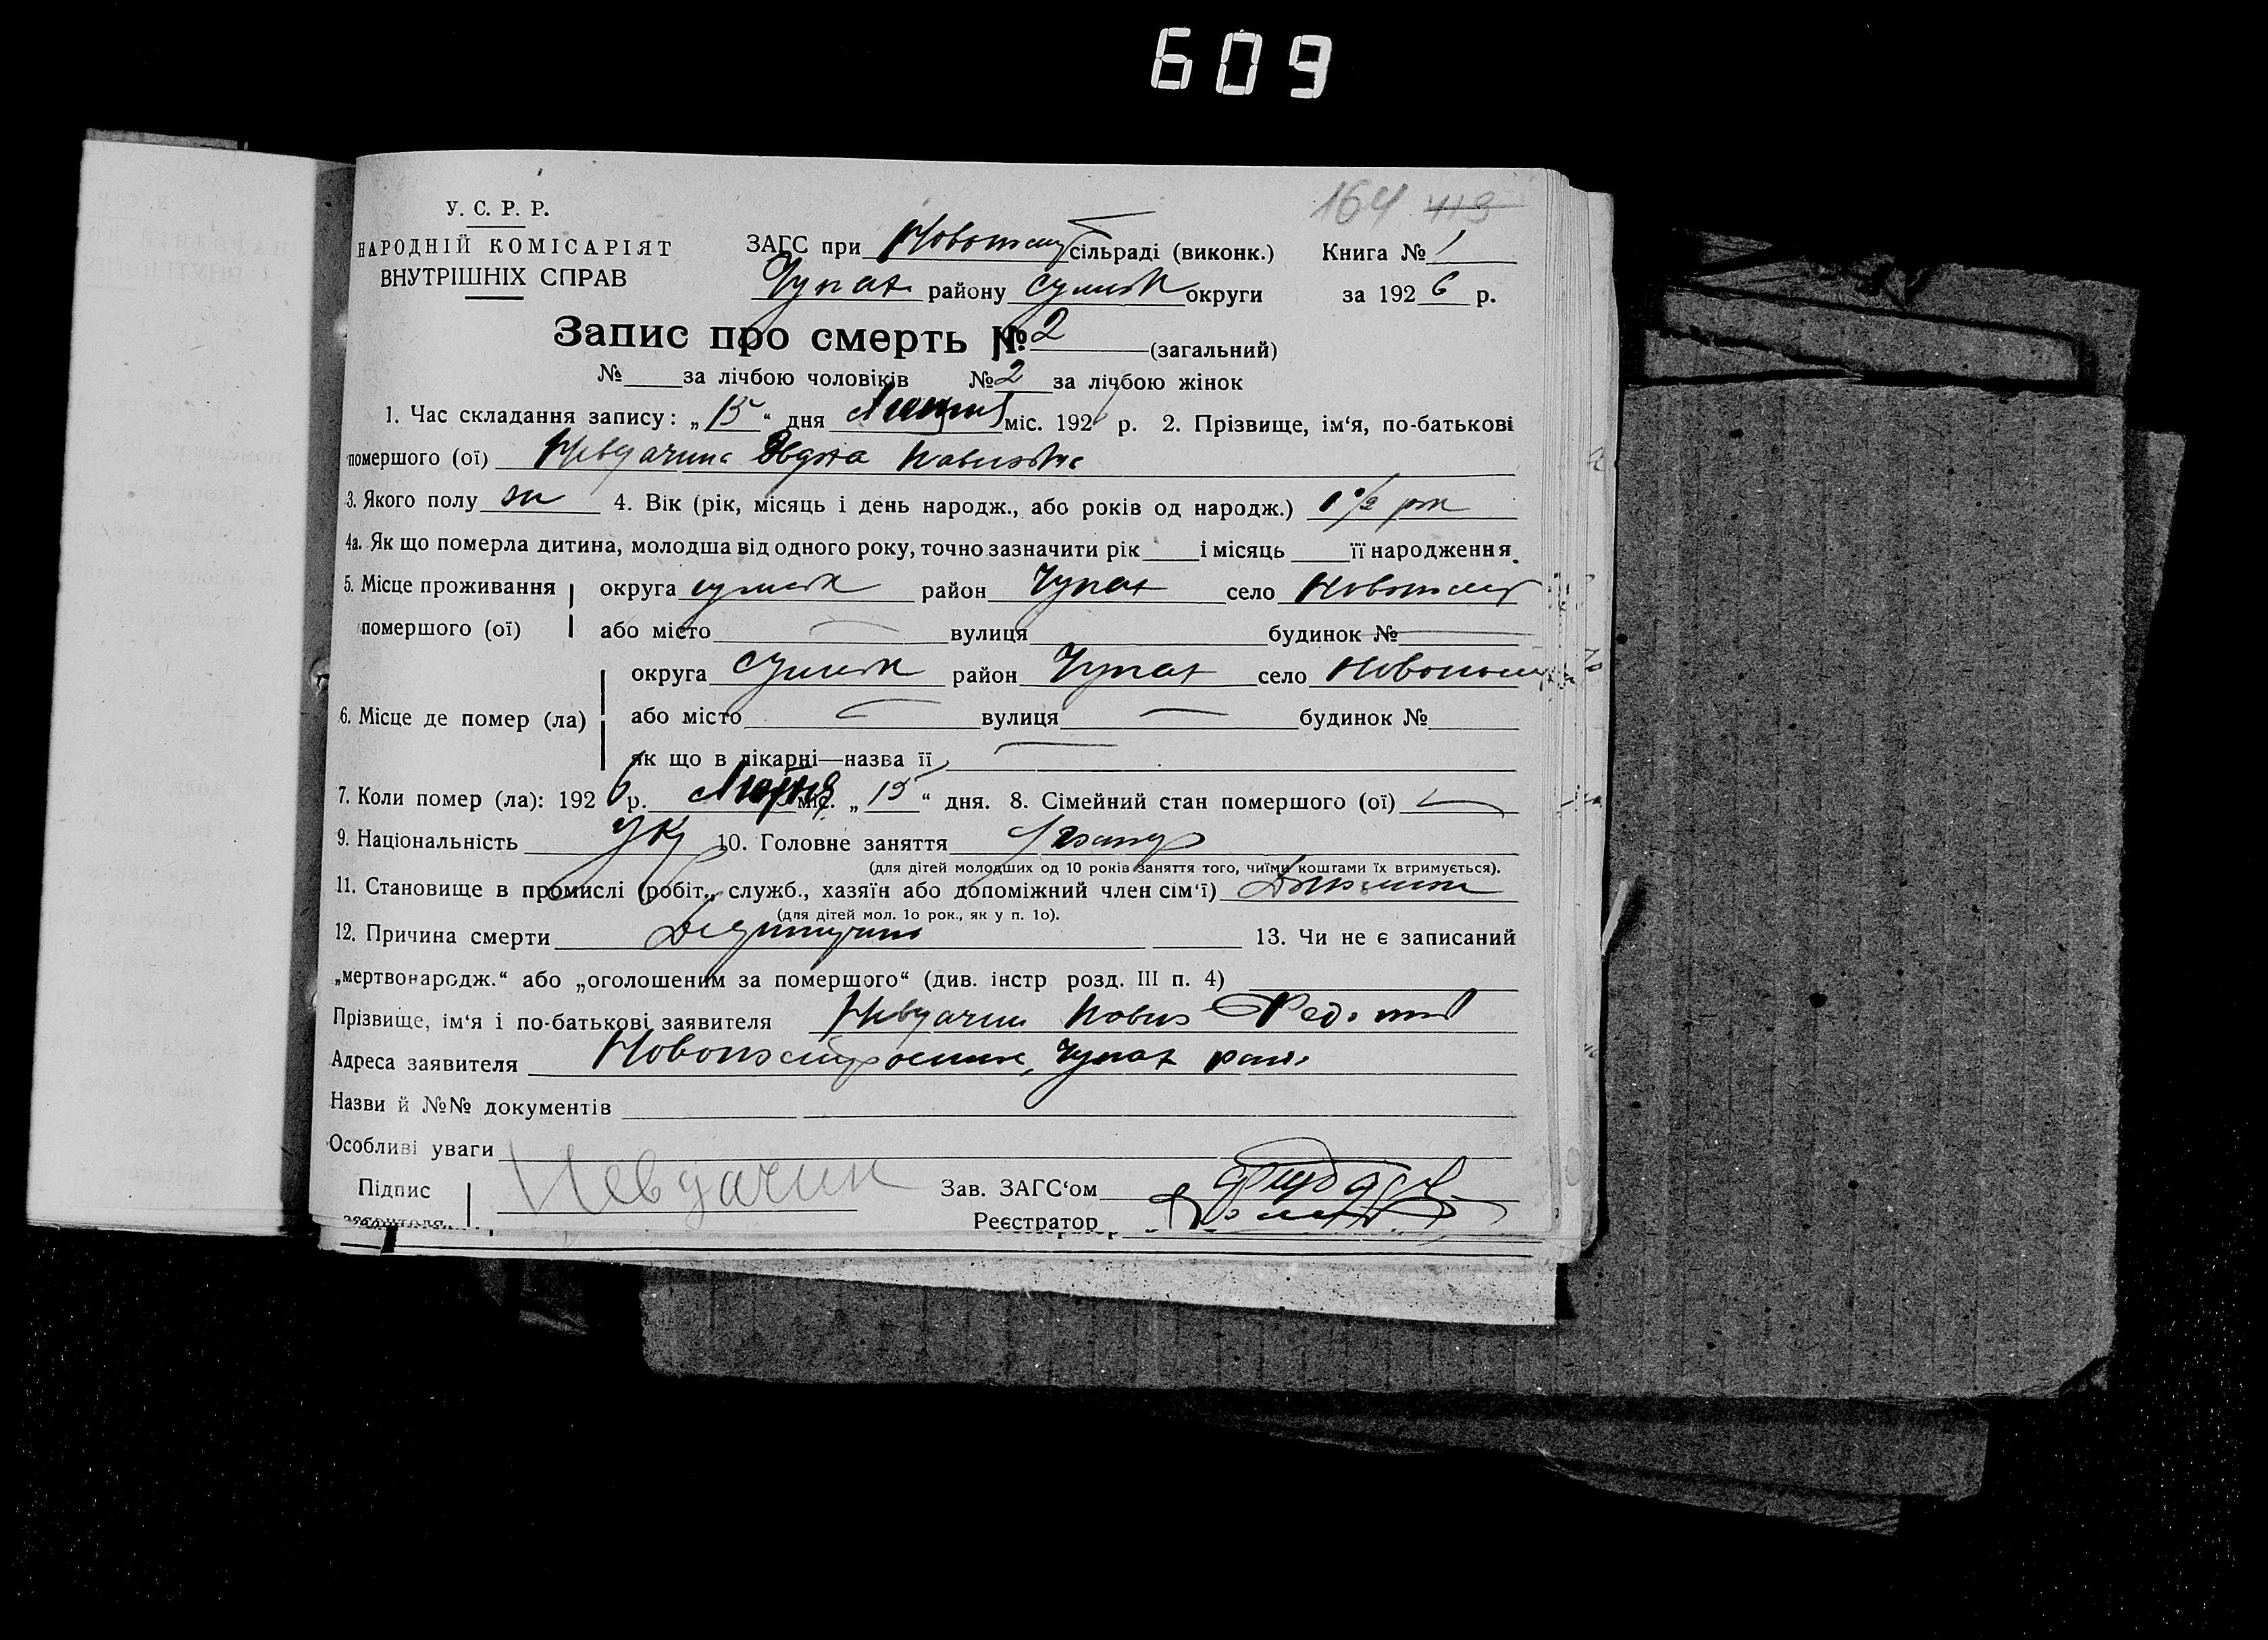 609
164 419
У. С. Р. Р.
НАРОДНІЙ КОМІСАРІЯТ
ВНУТРІШНІХ СПРАВ
ЗАГС при сільраді (виконк.) Книга № 1
Чупах району Сумськ округи за 1926 р.
Запис про смерть № 2 (загальний)
№ за лічбою чоловіків № 2 за лічбою жінок
1. Час складання запису: „15“ дня міс. 192 р. 2. Прізвище, ім‘я, по-батькові
помершого (ої) Невдачина Явдоха Павловна
3. Якого полу жн 4. Вік (рік, місяць і день народж., або років од народж.) 1 1/2 рік
4а. Як що померла дитина, молодша від одного року, точно зазначити рік і місяць її народження.
5. Місце проживання округа Сумськ район Чупах село
помершого (ої) або місто вулиця будинок №
округа Сумськ район Чупах село
6. Місце де помер (ла) або місто вулиця будинок №
як що в лікарні—назва її
7. Коли помер (ла): 1926 р. Лютня міс. „15“ дня. 8. Сімейний стан помершого (ої)
9. Національність Укр 10. Головне заняття
(для дітей молодших од 10 років заняття того, чиїми коштами їх втримується).
11. Становище в промислі (робіт., служб., хазяїн або допоміжний член сім‘ї)
(для дітей мол. 10 рок., як у п. 10).
12. Причина смерти 13. Чи не є записаний
„мертвонародж.“ або „оголошеним за помершого“ (див. інстр розд. III п. 4)
Прізвище, ім‘я і по-батькові заявителя Невдачин Павло
Адреса заявителя Чупах рай.
Назви й №№ документів
Особливі уваги
Підпис Невдачин Зав. ЗАГС‘ом
заявителя Реєстратор